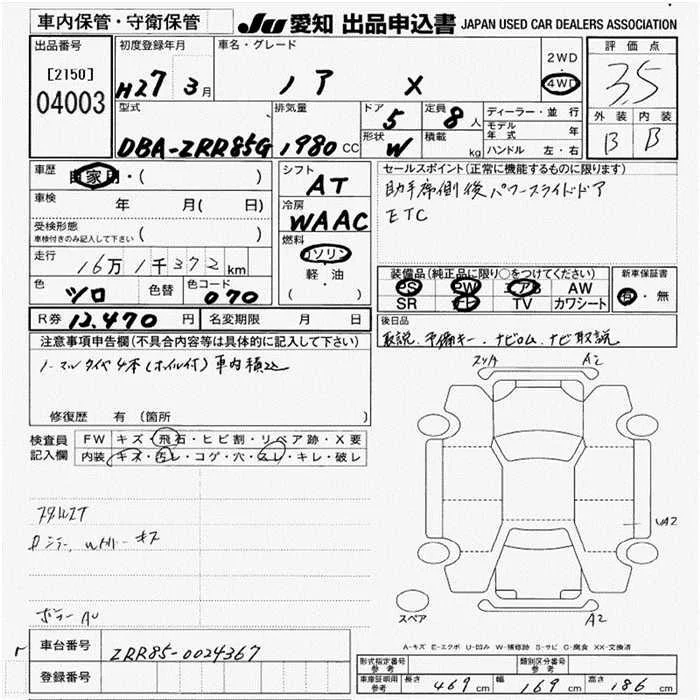 車内保管・守衛保管
JU 愛知 出品申込書 JAPAN USED CAR DEALERS ASSOCIATION
出品番号
[2150]
04003
初度登録年月
H27 3月
車名・グレード
ノア X
2WD
・
4WD
評価点
3.5
外装 内装
B B
型式
DBA-ZRR85G
排気量
1980 CC
ドア
5
形状
W
定員
8人
積載
kg
ディーラー・並行
モデル年式 年
ハンドル 左・右
車歴
自家用・( )
車検 年 月( 日)
受検形態
車検付きのみ記入して下さい ( )
走行
16万1千372km
色 ツロ 色替 色コード 070
シフト
AT
冷房
WAAC
燃料
ガソリン
軽・油
( )
セールスポイント(正常に機能するものに限ります)
助手席側後パワースライドドア
ETC
装備品(純正品に限り○をつけてください)
PS PW エアB AW
SR ナビ TV カワシート
新車保証書
有・無
R券 12,470円 名変期限 月 日
後日品
取説、予備キー、ナビロム、ナビ取説
注意事項申告欄(不具合内容等は具体的に記入して下さい)
ノーマルタイヤ4本(ホイル付)車内積込
修復歴 有(箇所
検査員
記入欄
FW キズ・飛石・ヒビ割・リペア跡・X要
内装 キズ・汚レ・コゲ・穴・スレ・キレ・破レ
スリA A2
UA2
A2
スペア
A-キズ E-エクボ U-凹み W-補修跡 S-サビ C-腐食 XX-交換済
車台番号 ZRR85-0024367
登録番号
型式指定番号
参考
類別区分番号
参考
車庫証明用
参考
長さ 469cm 幅 169cm 高さ 186cm